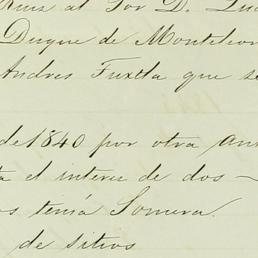 Ruiz al Sor D. Luc
Duque de Monteleon
Andres Tuxtla que se
de 1840 por otra
ta el interec de dos —
os tenía Somera.
de sitios